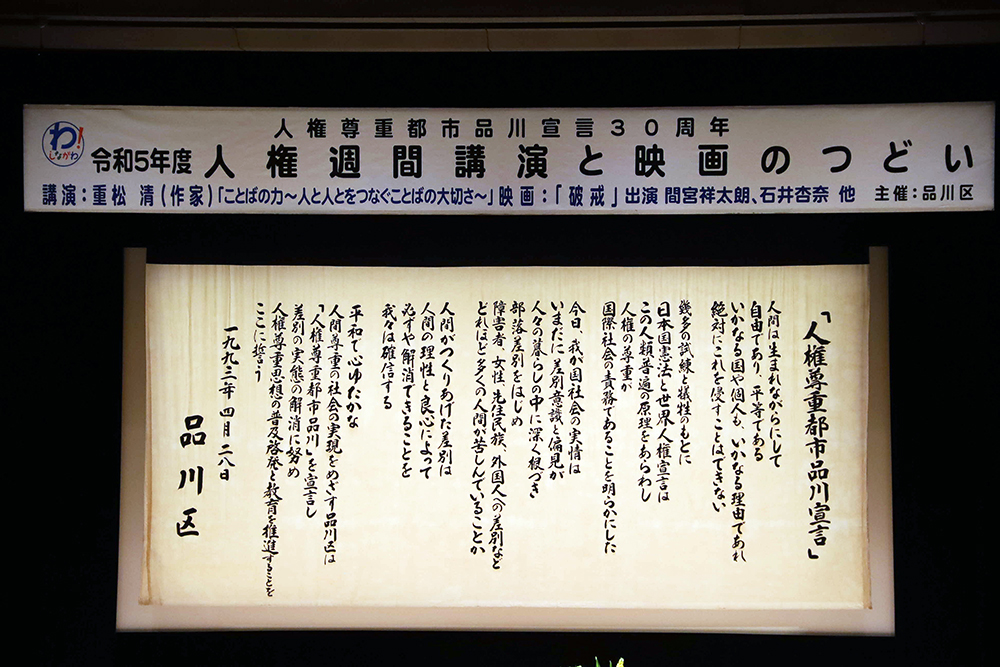 わ!
しながわ
人権尊重都市品川宣言30周年
令和5年度 人権週間講演と映画のつどい
講演:重松 清(作家)「ことばの力~人と人とをつなぐことばの大切さ~」映画:「破戒」出演 間宮祥太朗、石井杏奈 他 主催:品川区
「人権尊重都市品川宣言」
人間は生まれながらにして
自由であり、平等である
いかなる国や個人も、いかなる理由であれ
絶対にこれを侵すことはできない
幾多の試練と犠牲のもとに
日本国憲法と世界人権宣言は
この人類普遍の原理をあらわし
人権の尊重が
国際社会の責務であることを明らかにした
今日、我が国社会の実情は
いまだに差別意識と偏見が
人々の暮らしの中に深く根づき
部落差別をはじめ
障害者、女性、先住民族、外国人への差別など
どれほど多くの人間が苦しんでいることか
人間がつくりあげた差別は
人間の理性と良心によって
必ずや解消できることを
我々は確信する
平和で心ゆたかな
人間尊重の社会の実現をめざす品川区は
「人権尊重都市品川」を宣言し
差別の実態の解消に努め
人権尊重思想の普及啓発と教育を推進することを
ここに誓う
一九九三年 四月 二八日
品川区